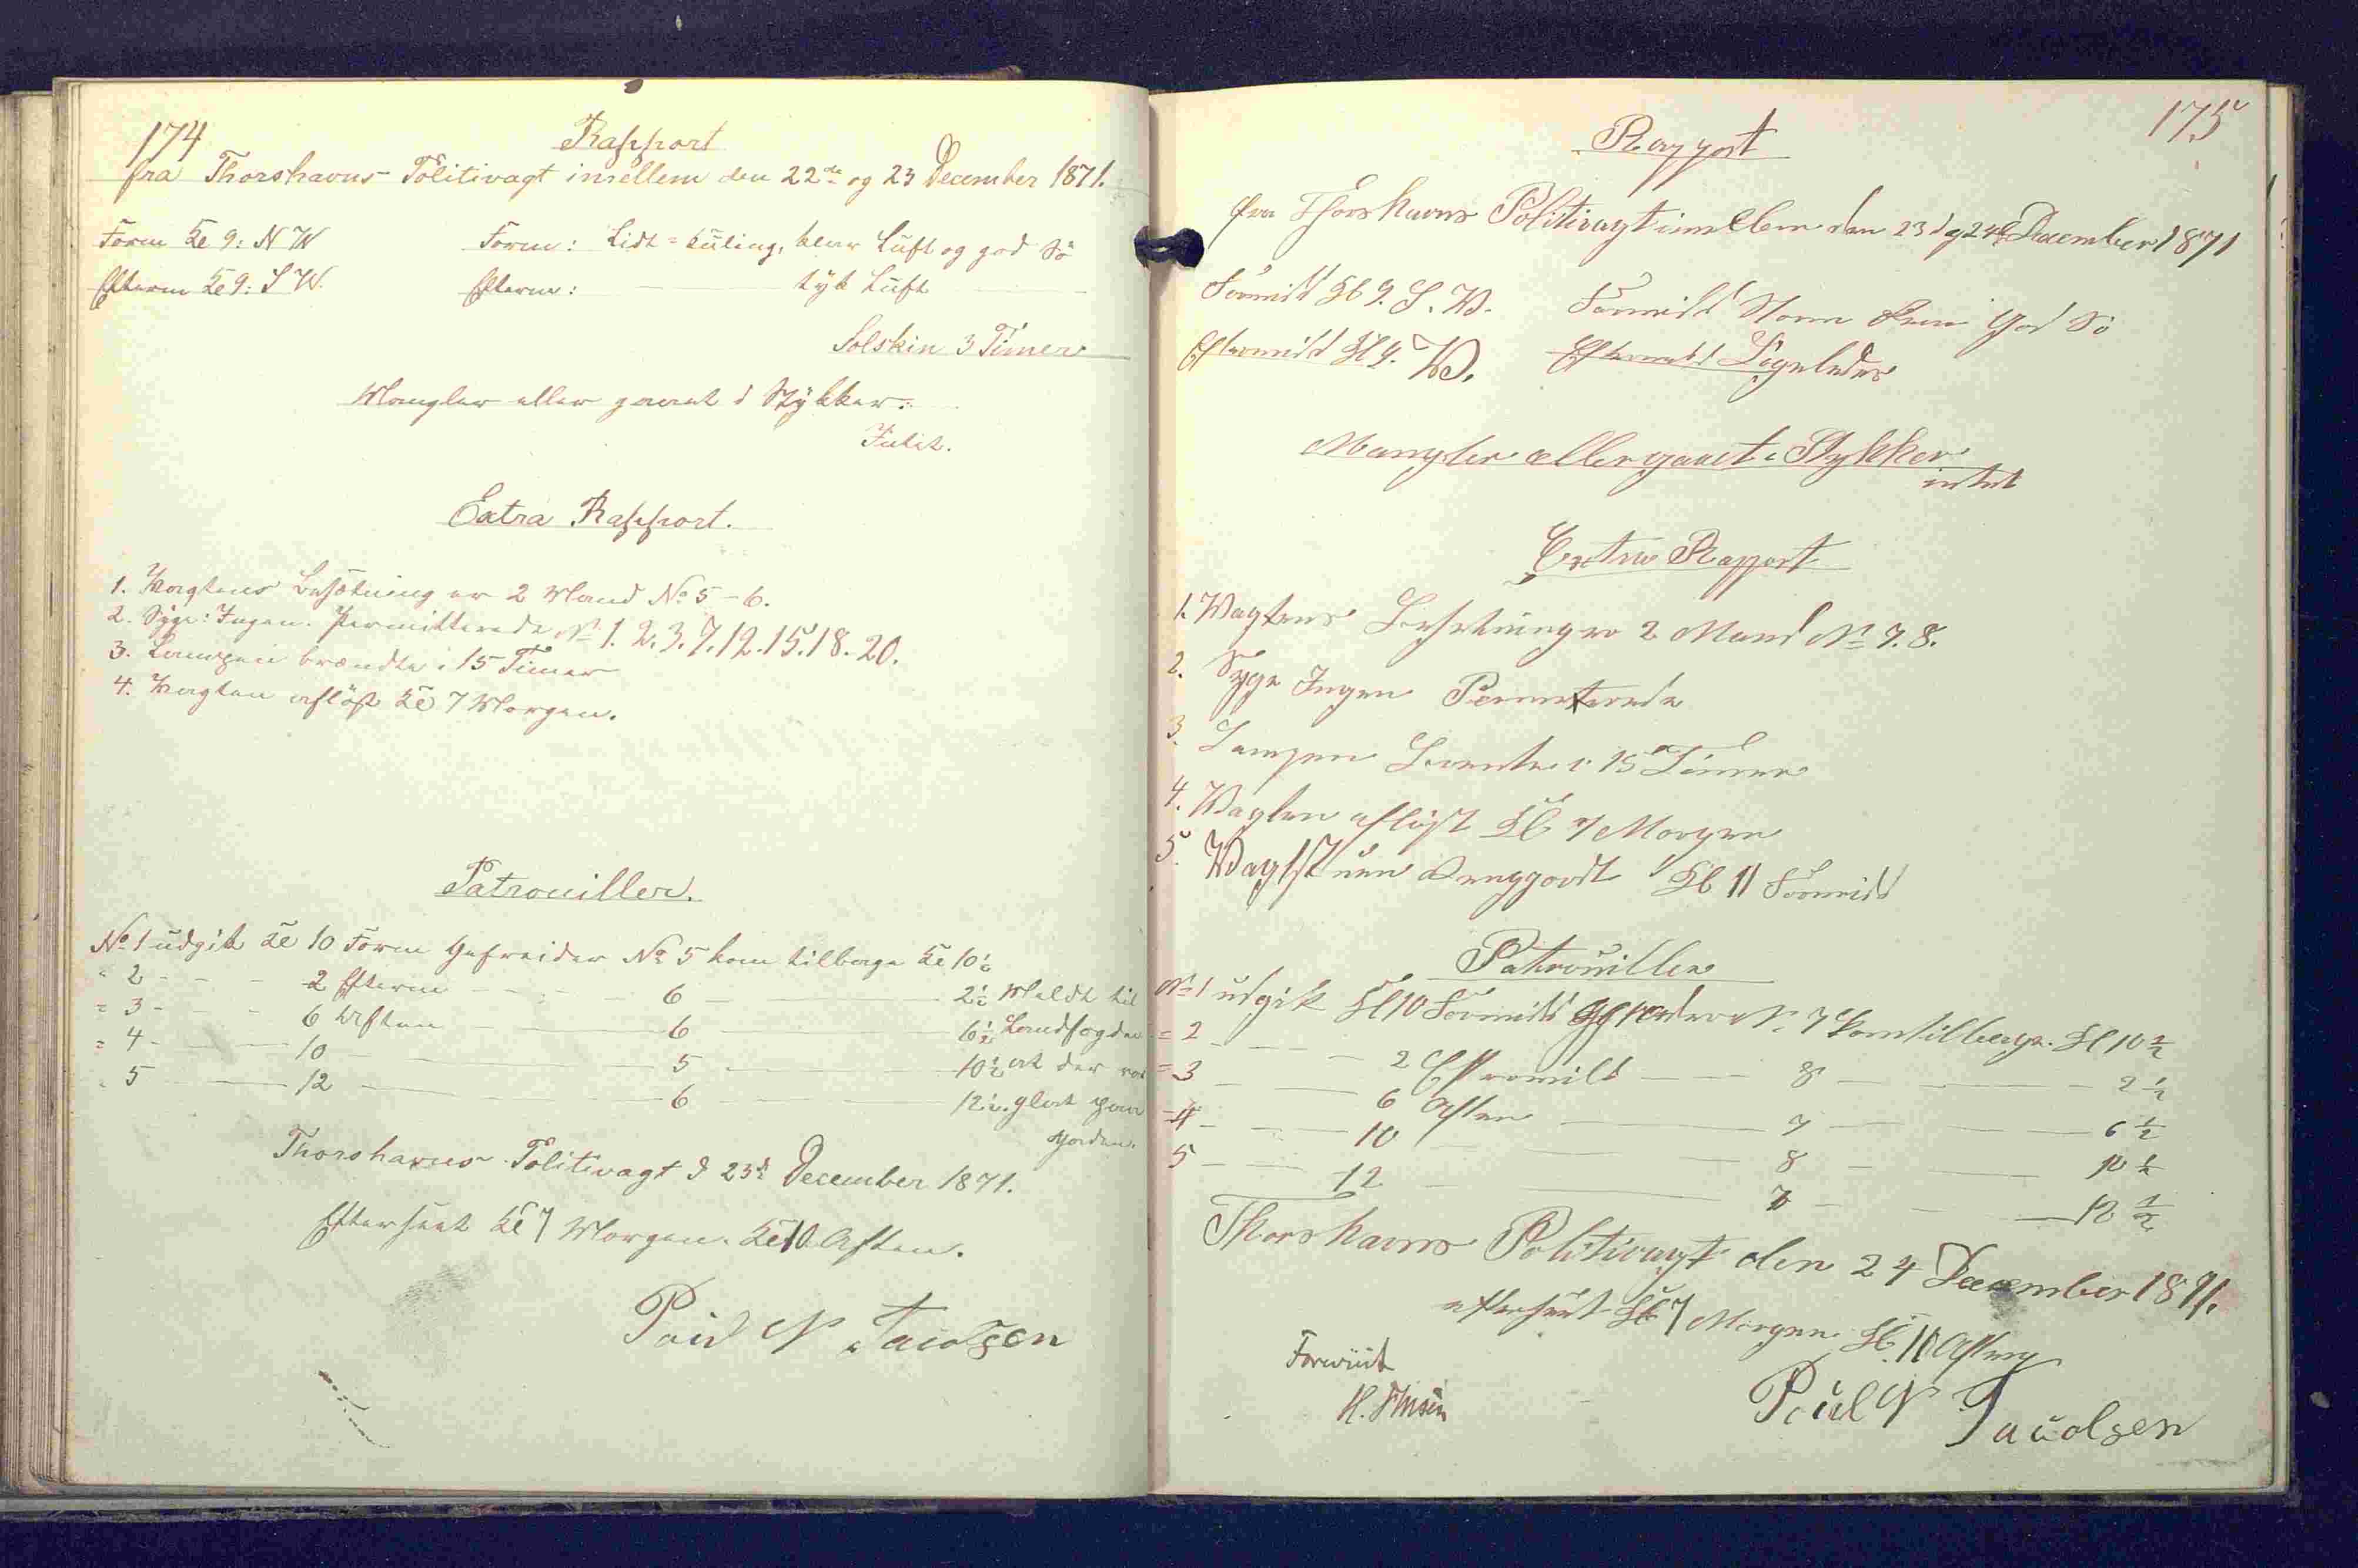 174
Rapport
fra Thorshavns Politivagt imellem den 22de og 23 December 1871.
Form Kl 9: N W Form: Lidt = Küling, klar Lüft og god Sö
Efterm Kl 9: S W. Efterm: — tyk Lüft —
Solskin 3 Timer
Mangler eller gaaet i Stykker:
Intet.
Extra Rapport.
1. Vagtens Besætning er 2 Mand No 5 - 6.
2. Syge: Ingen. Permitterede No 1. 2. 3. 7. 12. 15. 18. 20.
3. Lampen brændte i 15 Timer
4. Vagten aflöst Kl 7 Morgen.
Patrouiller.
No 1 udgik Kl 10 Form Gefreider No 5 kom tilbage Kl 10½
" 2 - - - 2 Efterm - - - - 6 — 2½ Meldt til
= 3 - - - 6 Aften — 6 — 6½ Landfogden
= 4 - — 10 — 5 — 10½ at der var
" 5 — 12 — 6 — 12½. glat paa
Gaden.
Thorshavns Politivagt d 23de December 1871.
Efterseet Kl 7 Morgen. Kl 10 Aften.
Poul N Jacobsen
175
Rapport
fra Thorshavns Politivagt imellem den 23 og 24 December 1871
Formidd Kl 9. S. W. Formidd Storm god Sö
Eftermidd Kl 9. W. Eftermidd Ligeledes
Mangler eller gaaet i Stykker
intet
Extra Rapport
1. Vagtens Besetning er 2 Mand No 7. 8.
2. Syge Ingen Permeterede
3. Lampen Brente i 15 Timer
4. Vagten aflöst Kl 7 Morgen
5. Vagtstuen Rengjordt Kl 11 Formidd
Patrouiller
No 1 udgik Kl 10 Formidd No 7 kom tilbage. Kl 10½
= 2 - - - 2 Eftermidd — 8 — 2½
= 3 — 6 Aften — 7 — 6½
= 4 - — 10 — 8 — 10½
5 — 12 — 7 — 12½
Thorshavns Politivagt den 24 December 1871.
efterseet Kl 7 Morgen Kl. 10 Aften
Poul N Jacobsen
Foreviist